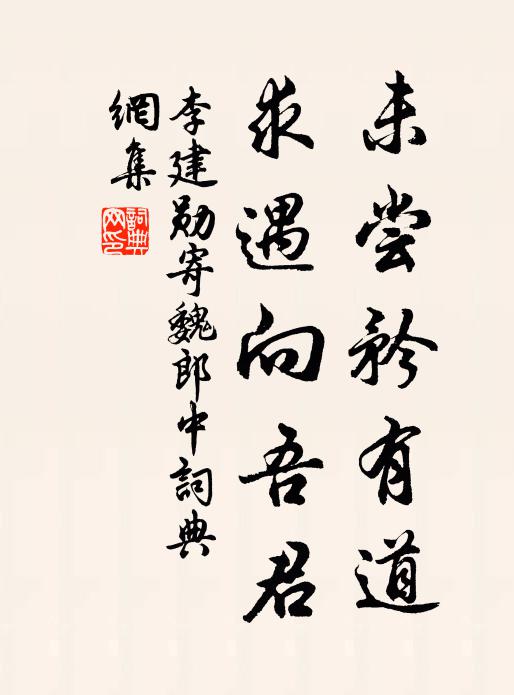 未尝矜有道
求遇向吾君
李建勋寄魏郎中詞典
網集
詞典
网印